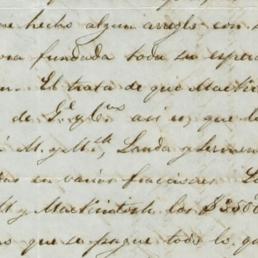 hecho algun arreglo con s
fundada toda su espera
El trata de que Mackin
de G. y Cos asi es, que de
M. y Mth, Landa y
en varias fracciones. Lo
M y Mackintosh los $ 2500
que se pague todo lo qu